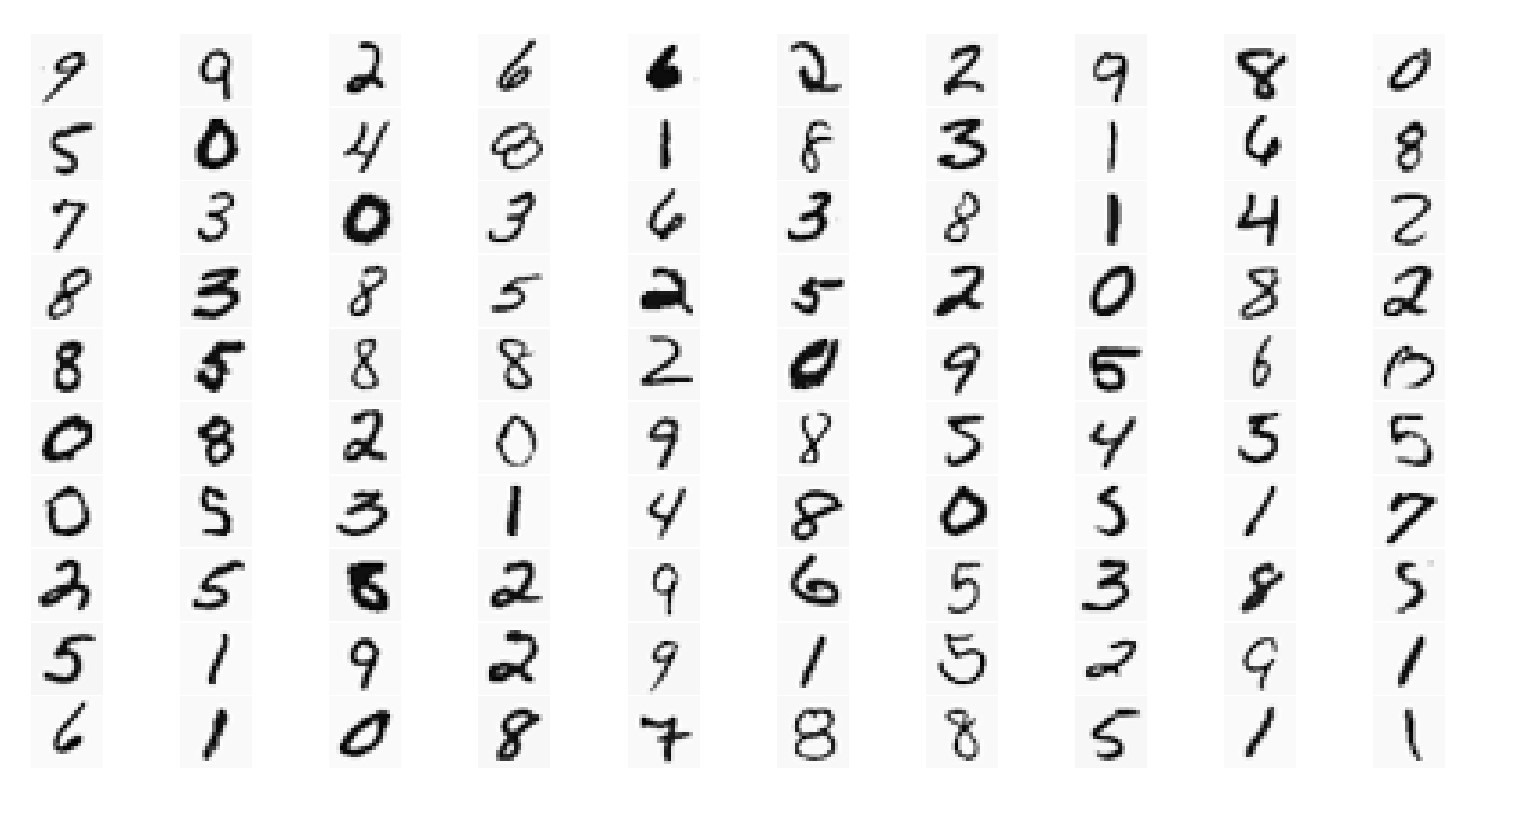 9 9 2 6 6 2 2 9 8 0
5 0 4 8 1 8 3 1 6 8
7 3 0 3 6 3 8 1 4 2
8 3 8 5 2 5 2 0 8 2
8 5 8 8 2 0 9 5 6
0 8 2 0 9 8 5 4 5 5
0 5 3 1 4 8 0 5 1 7
2 5 8 2 9 6 5 3 8 5
5 1 9 2 9 1 5 2 9 1
6 1 0 8 7 8 8 5 1 1